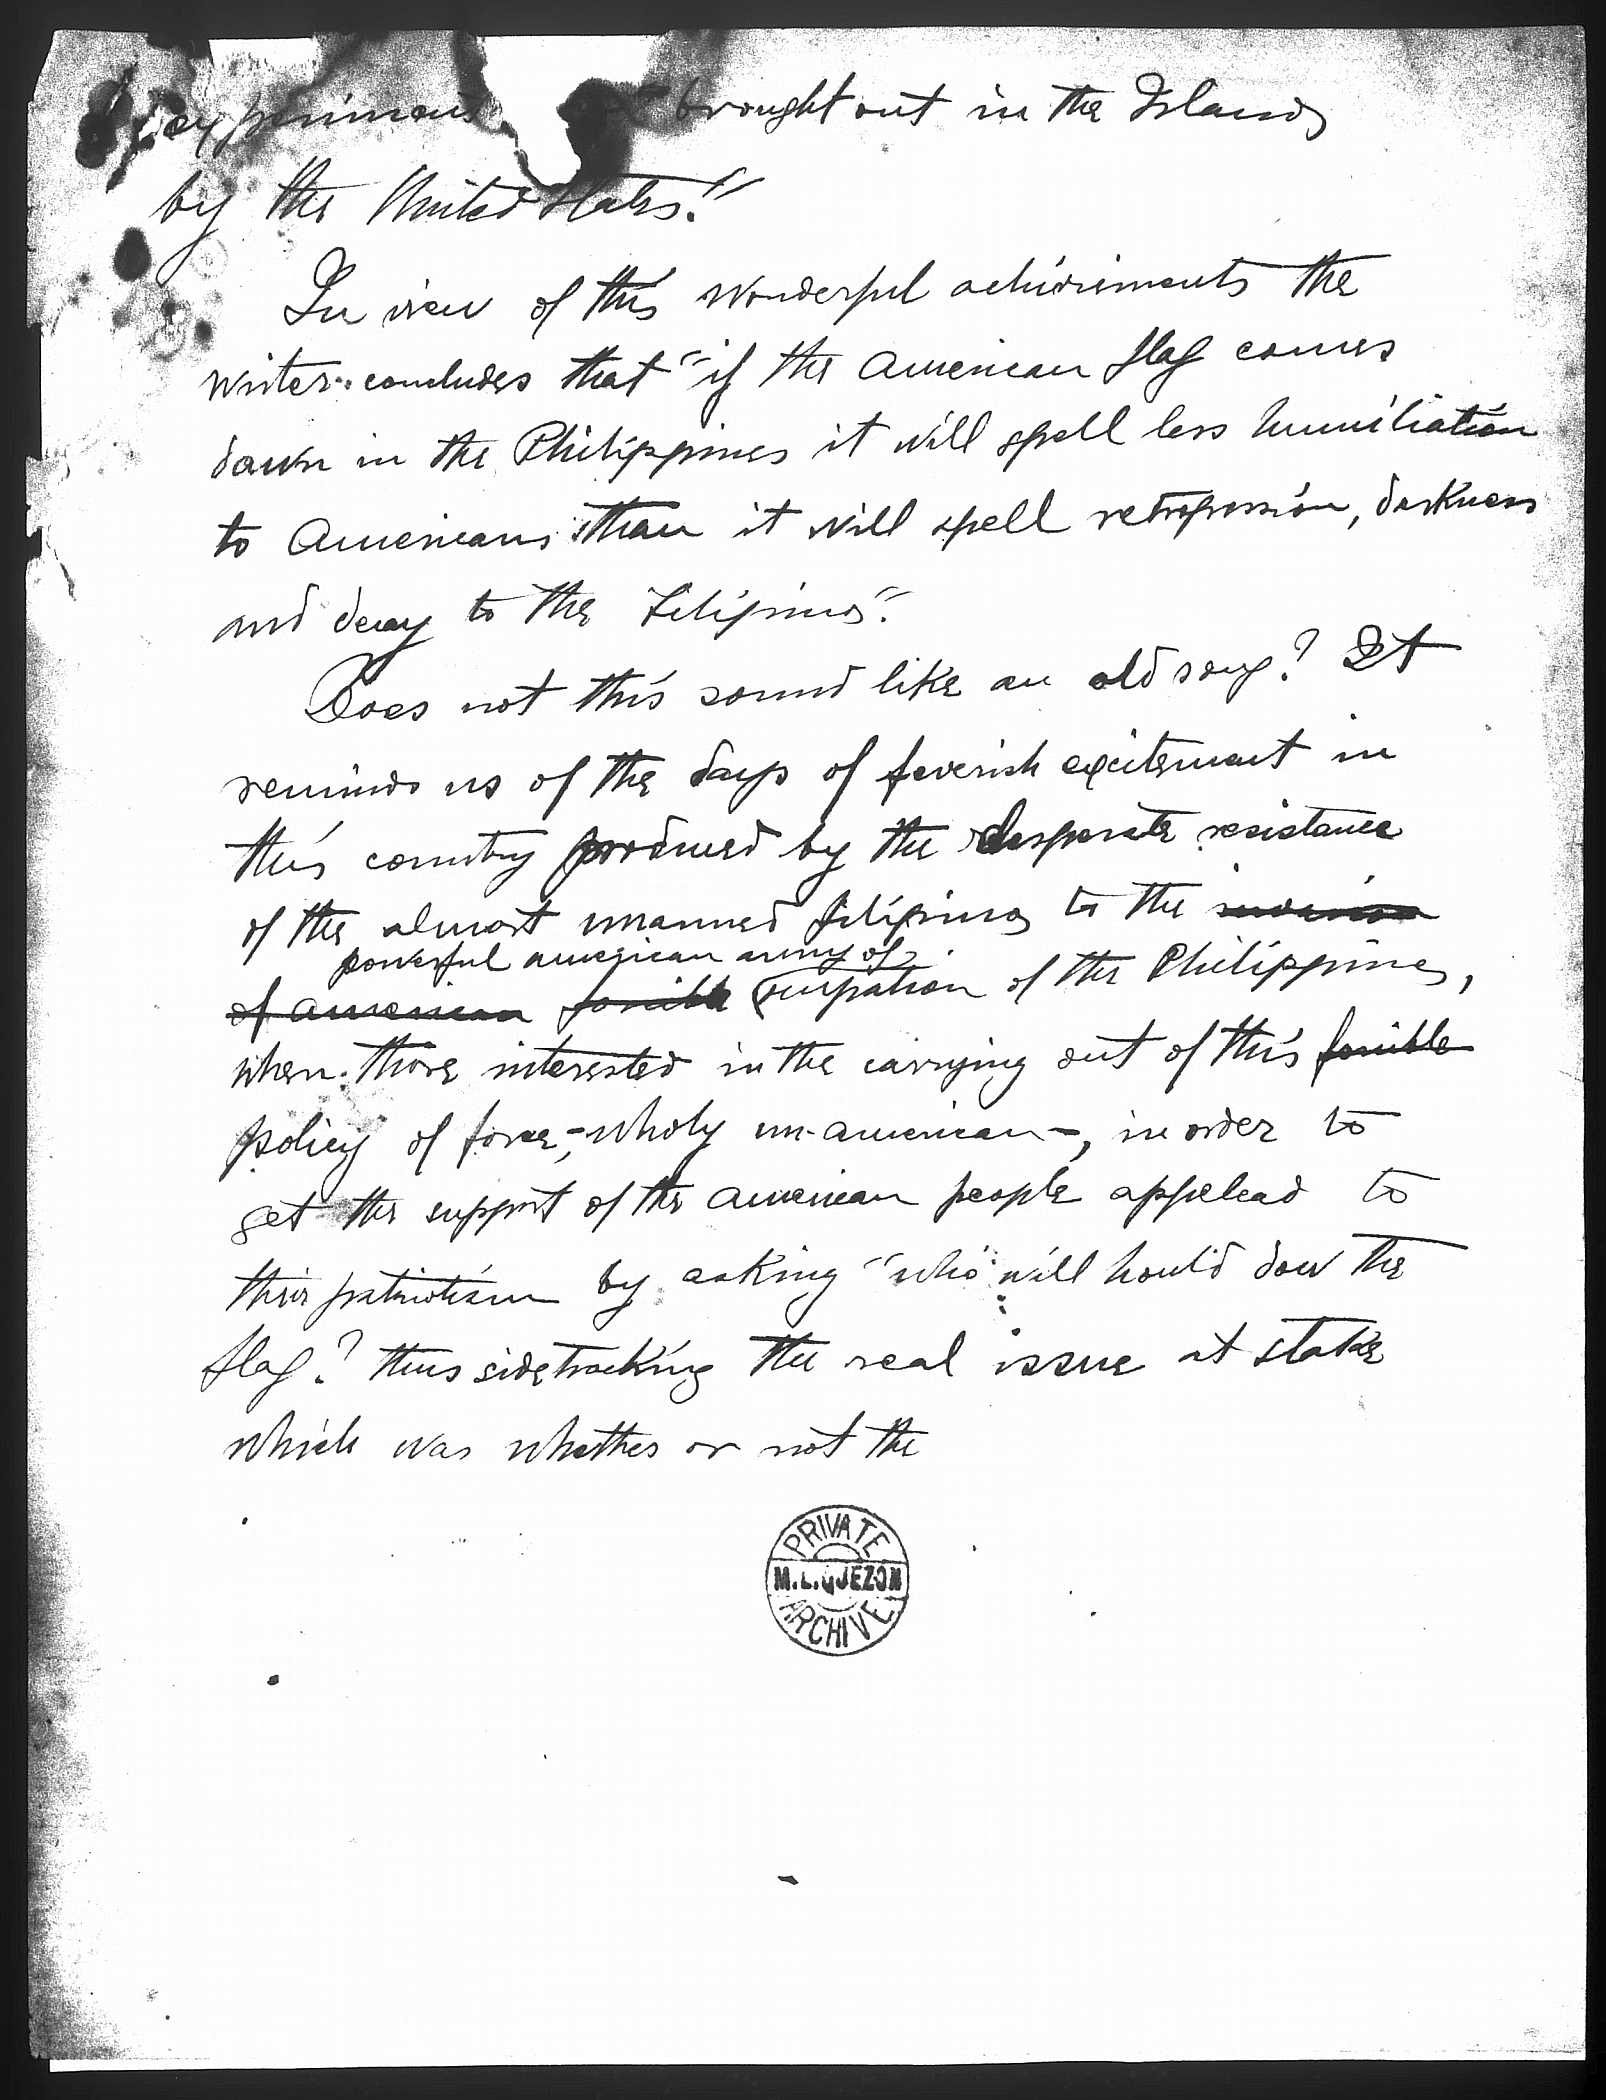 brought out in the Islands
by the United States."
In view of this wonderful achivements the
writer concludes that "if the American flag comes
down in the Philippines it will spell less humiliation
to Americans than it will spell retrogression, darkness
and decay to the Filipinos".
Does not this sound like an old song? It
reminds us of the days of feverish excitement in
this country produced by the desperate resistance
of the almost unarmed filipinos to the invasion
powerful american army of
of american forcible occupation of the Philippines,
when those interested in the carrying out of this forcible
policy of force,-wholy un-american-, in order to
get the support of the american people appelead to
their patriotism by asking "who will hould dow the
flag? thus sidetracking the real issue at stake
which was whether or not the
PRIVATE
M.L.QUEZON
ARCHIVE